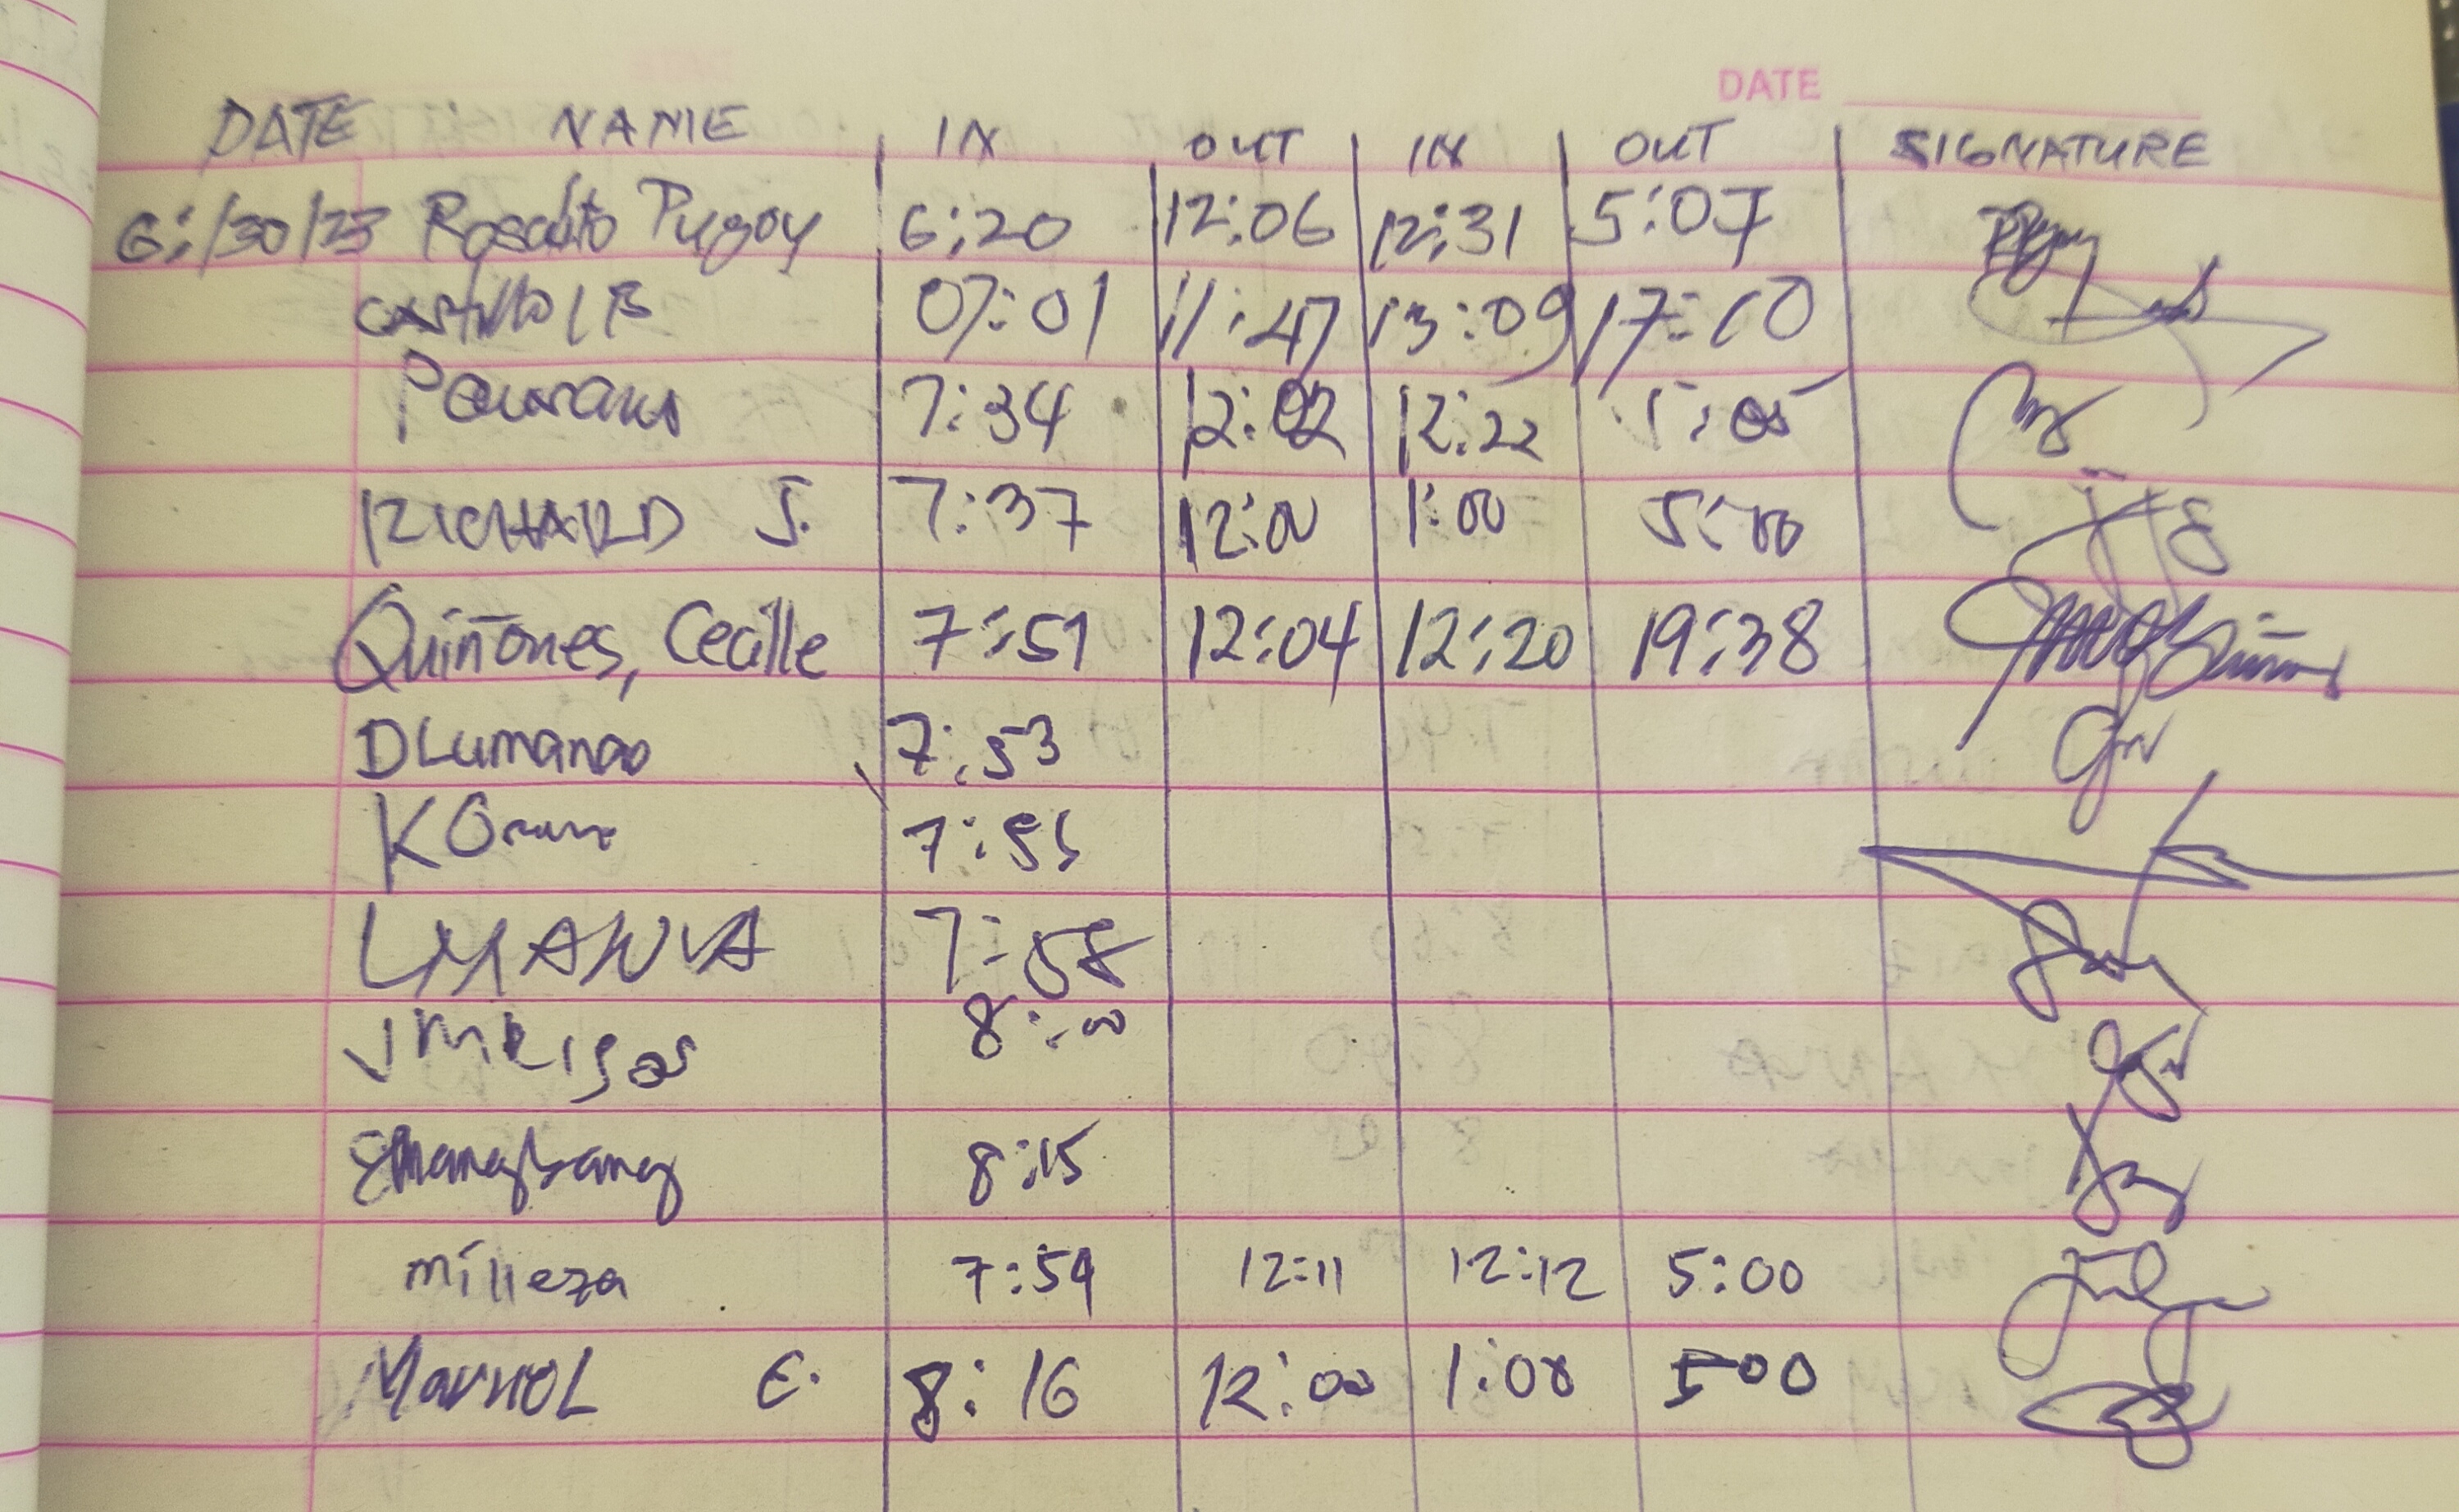 DATE
DATE NAME IN OUT IN OUT SIGNATURE
6:/30/23 Rosalito Pugoy 6:20 12:06 12:31 5:07
Castillo / B 07:01 11:47 13:09 17:10
7:34 12:02 12:22 5:05
RICHARD S. 7:37 12:00 1:00 5:00
Quiñones, Cecille 7:51 12:04 12:20 19:38
DLumanao 7:53
7:55
LMANUA 7:58
8:00
8:15
milleza 7:59 12:11 12:12 5:00
E. 8:16 12:00 1:00 500